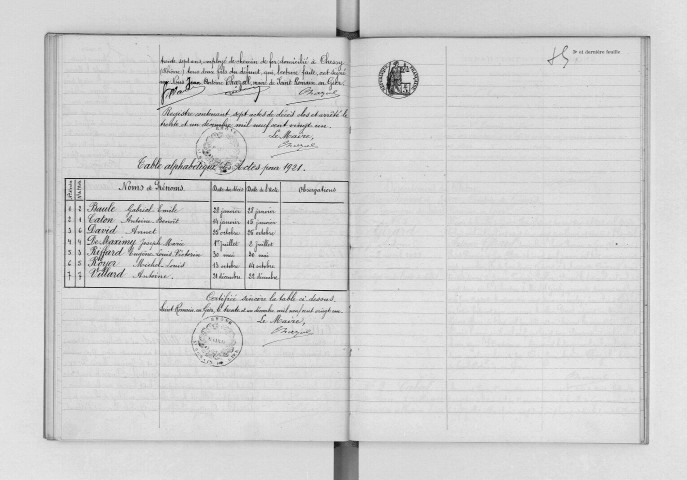 trente sept ans, employé de chemin de fer domicilié à Chessy
(Rhône) tous deux fils du défunt, qui, lecture faite, ont signé
avec Nous Jean Antoine Chazal, maire de Saint Romain en Gier.
Chazal
Registre contenant sept actes de décès clos et arrêté le
trente et un décembre mil neuf cent vingt un.
Le Maire,
Chazal
Table alphabétique des Actes pour 1921.
Noms et Prénoms Date du décès Date de l'Acte Observations
1 2 Baule Gabriel Emile 28 janvier 28 janvier
2 1 Caton Antoine Benoît 14 janvier 15 janvier
3 6 David Annet 25 octobre 26 octobre
4 4 De Maximy Joseph Marie 1er juillet 2 juillet
5 3 Reffard Eugène Louis Victorin 30 mai 30 mai
6 5 Royer Michel Louis 13 octobre 14 octobre
7 7 Villard Antoine 21 décembre 22 décembre
Certifiée sincère la table ci dessus.
Saint Romain en Gier, le trente et un décembre mil neuf cent vingt un.
Le Maire,
Chazal
3e et dernière feuille